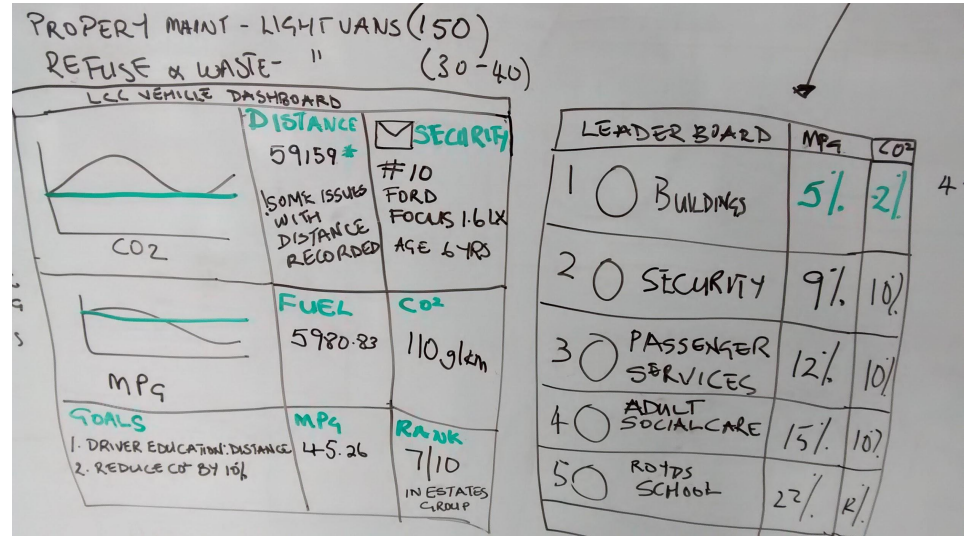 PROPERTY MAINT - LIGHT VANS (150)
REFUSE & WASTE - " (30-40)
LCC VEHICLE DASHBOARD
CO2
DISTANCE
59159*
SOME ISSUES
WITH
DISTANCE
RECORDED
SECURITY
#10
FORD
FOCUS 1.6 LX
AGE 6 YRS
MPG
FUEL
5980.83
CO²
110 g/km
GOALS
1. DRIVER EDUCATION: DISTANCE
2. REDUCE BY 10%
MPG
45.26
RANK
7/10
IN ESTATES
GROUP
LEADER BOARD MPG CO²
1 BUILDINGS 5% 2%
2 SECURITY 9% 10%
3 PASSENGER
SERVICES 12% 10%
4 ADULT
SOCIAL CARE 15% 10%
5 SCHOOL 22%
4